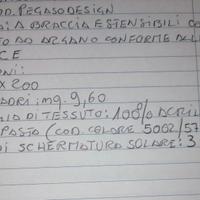 OD. PEGASO DESIGN
: A BRACCIA ESTENSIBILI CO
TO DO ARGANO CONFORME ALL
CE
ONI:
X 200
ADRI: mq. 9,60
DI TESSUTO: 100% ACRIL
POSTO (COD. COLORE 5002/57
DI SCHERMATURA SOLARE: 3